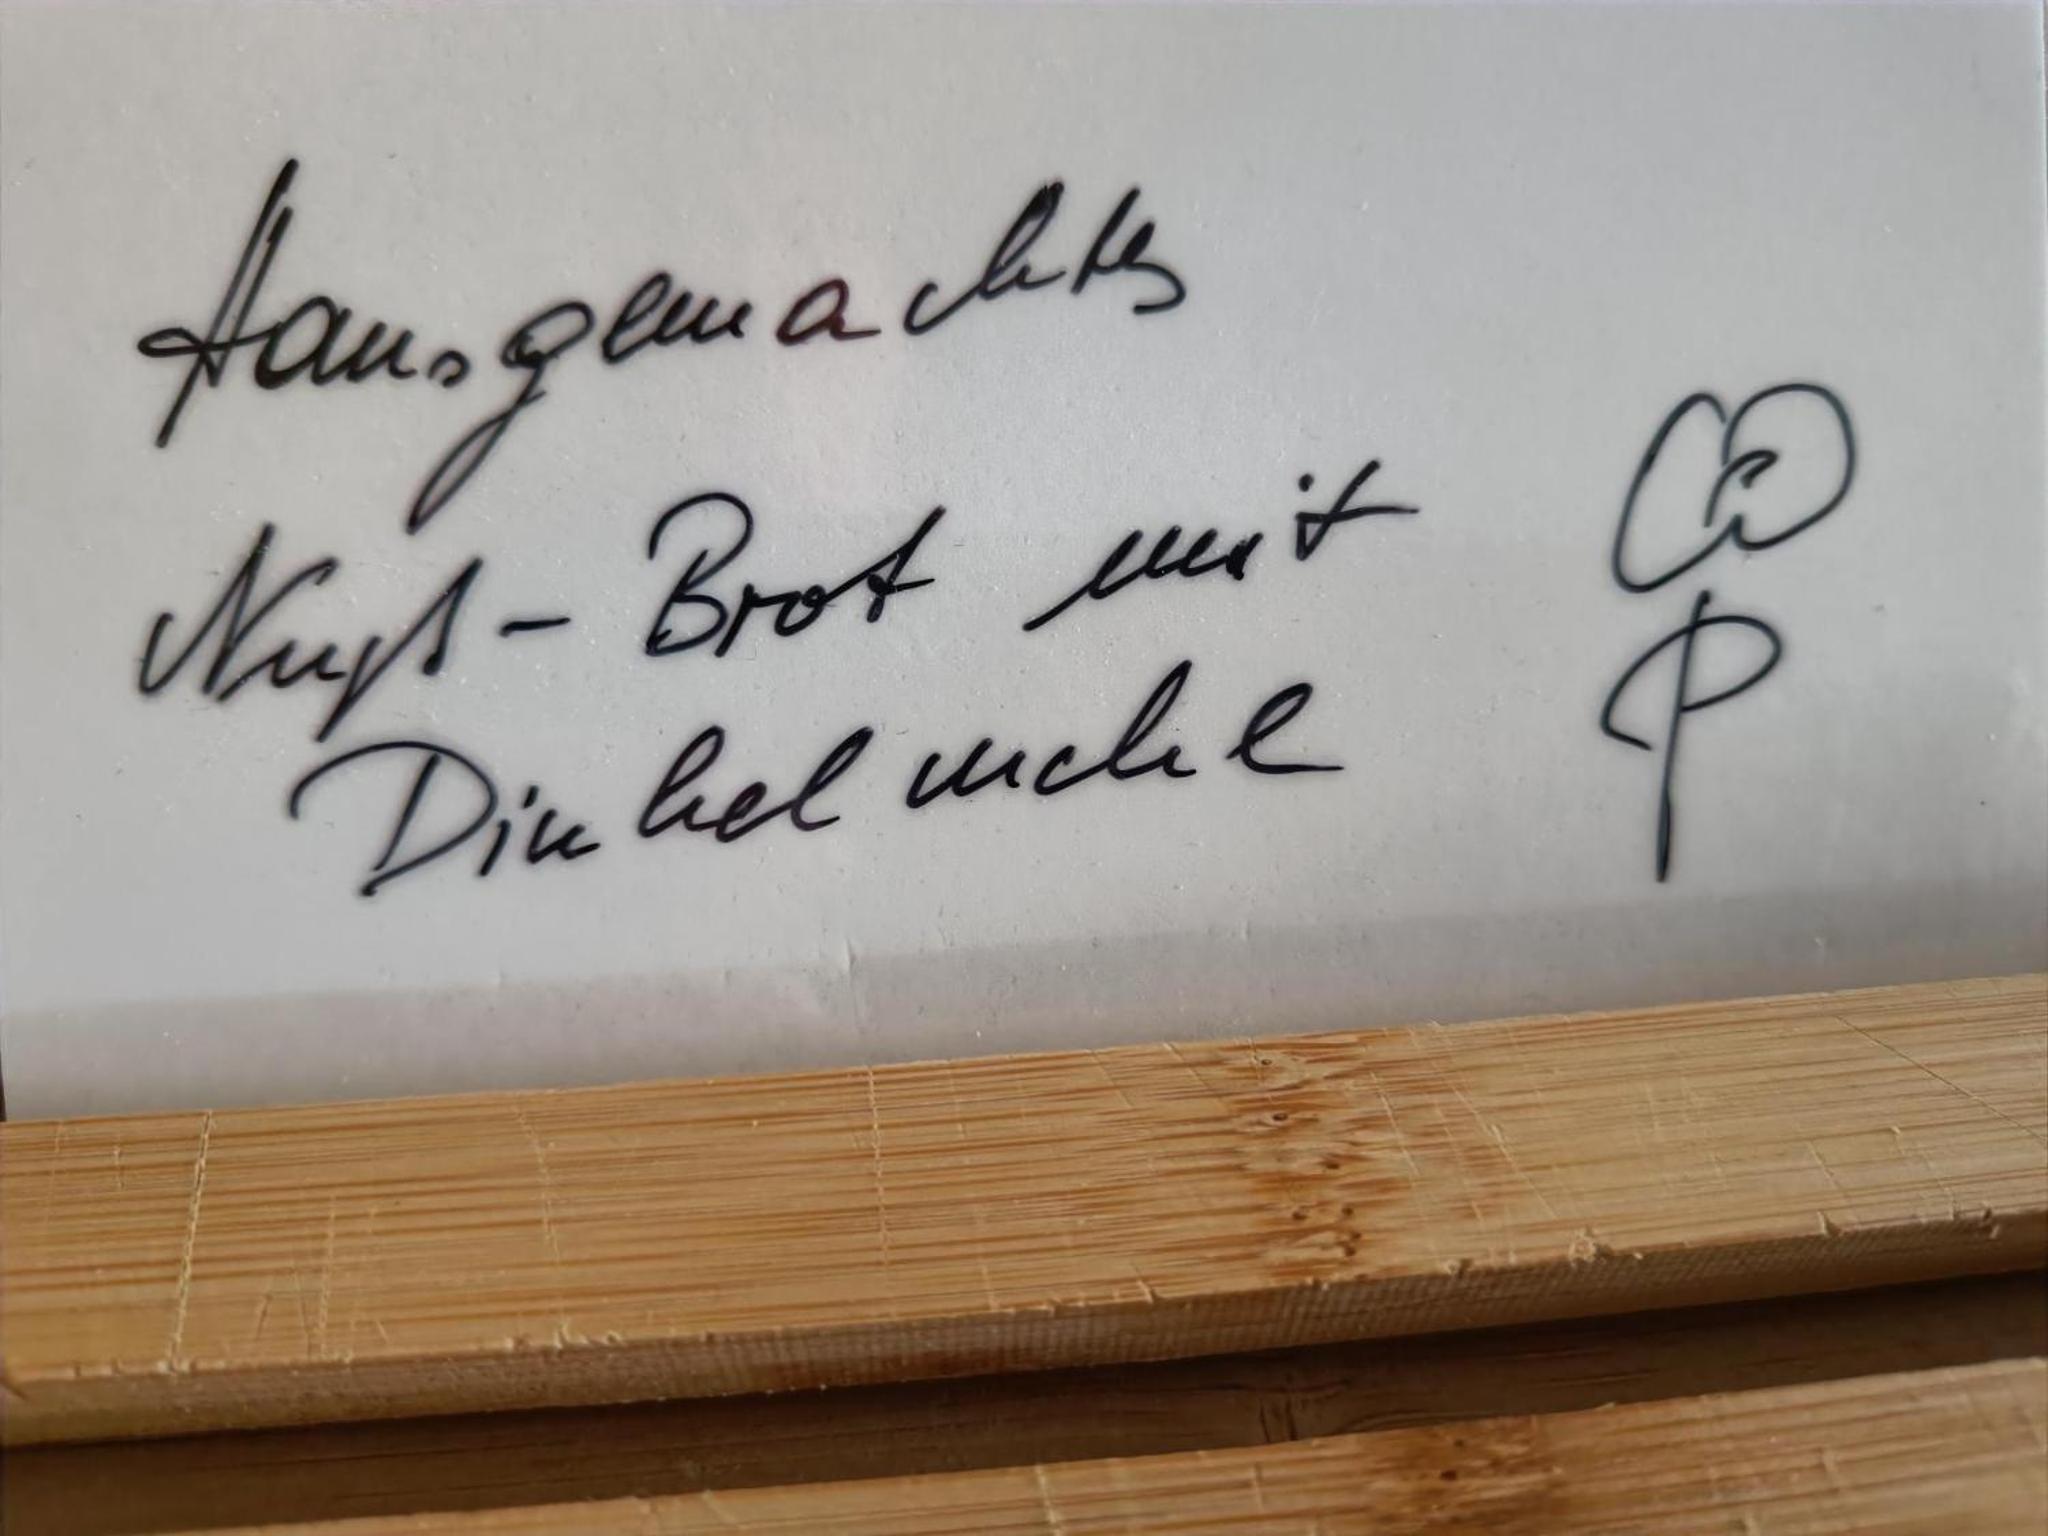 Hausgemachtes
Nuß - Brot mit
Dinkelmehl